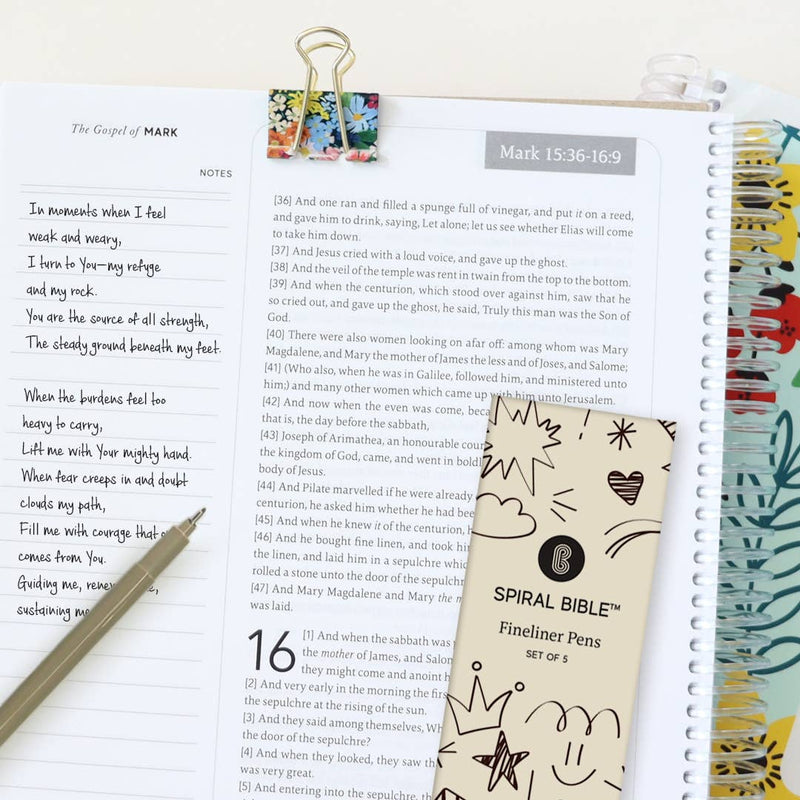 The Gospel of MARK
NOTES
In moments when I feel
weak and weary,
I turn to You—my refuge
and my rock.
You are the source of all strength,
The steady ground beneath my feet.
When the burdens feel too
heavy to carry,
Lift me with Your mighty hand.
When fear creeps in and doubt
clouds my path,
Fill me with courage that
comes from You.
Guiding me,
sustaining
Mark 15:36-16:9
[36] And one ran and filled a spunge full of vinegar, and put it on a reed,
and gave him to drink, saying, Let alone; let us see whether Elias will come
to take him down.
[37] And Jesus cried with a loud voice, and gave up the ghost.
[38] And the veil of the temple was rent in twain from the top to the bottom.
[39] And when the centurion, which stood over against him, saw that he
so cried out, and gave up the ghost, he said, Truly this man was the Son of
God.
[40] There were also women looking on afar off: among whom was Mary
Magdalene, and Mary the mother of James the less and of Joses, and Salome;
[41] (Who also, when he was in Galilee, followed him, and ministered unto
him;) and many other women which came up with him unto Jerusalem.
[42] And now when the even was come,
that is, the day before the sabbath,
[43] Joseph of Arimathea, an honourable
the kingdom of God, came, and went in
body of Jesus.
[44] And Pilate marvelled if he were already
centurion, he asked him whether he had
[45] And when he knew it of the centurion,
[46] And he bought fine linen, and took
the linen, and laid him in a sepulchre
rolled a stone unto the door of the
[47] And Mary Magdalene and Mary the
was laid.
16 [1] And when the sabbath was
the mother of James, and
they might come and anoint
[2] And very early in the morning the
the sepulchre at the rising of the sun.
[3] And they said among themselves,
the door of the sepulchre?
[4] And when they looked, they saw
was very great.
[5] And entering into the sepulchre,
SPIRAL BIBLE™
Fineliner Pens
SET OF 5